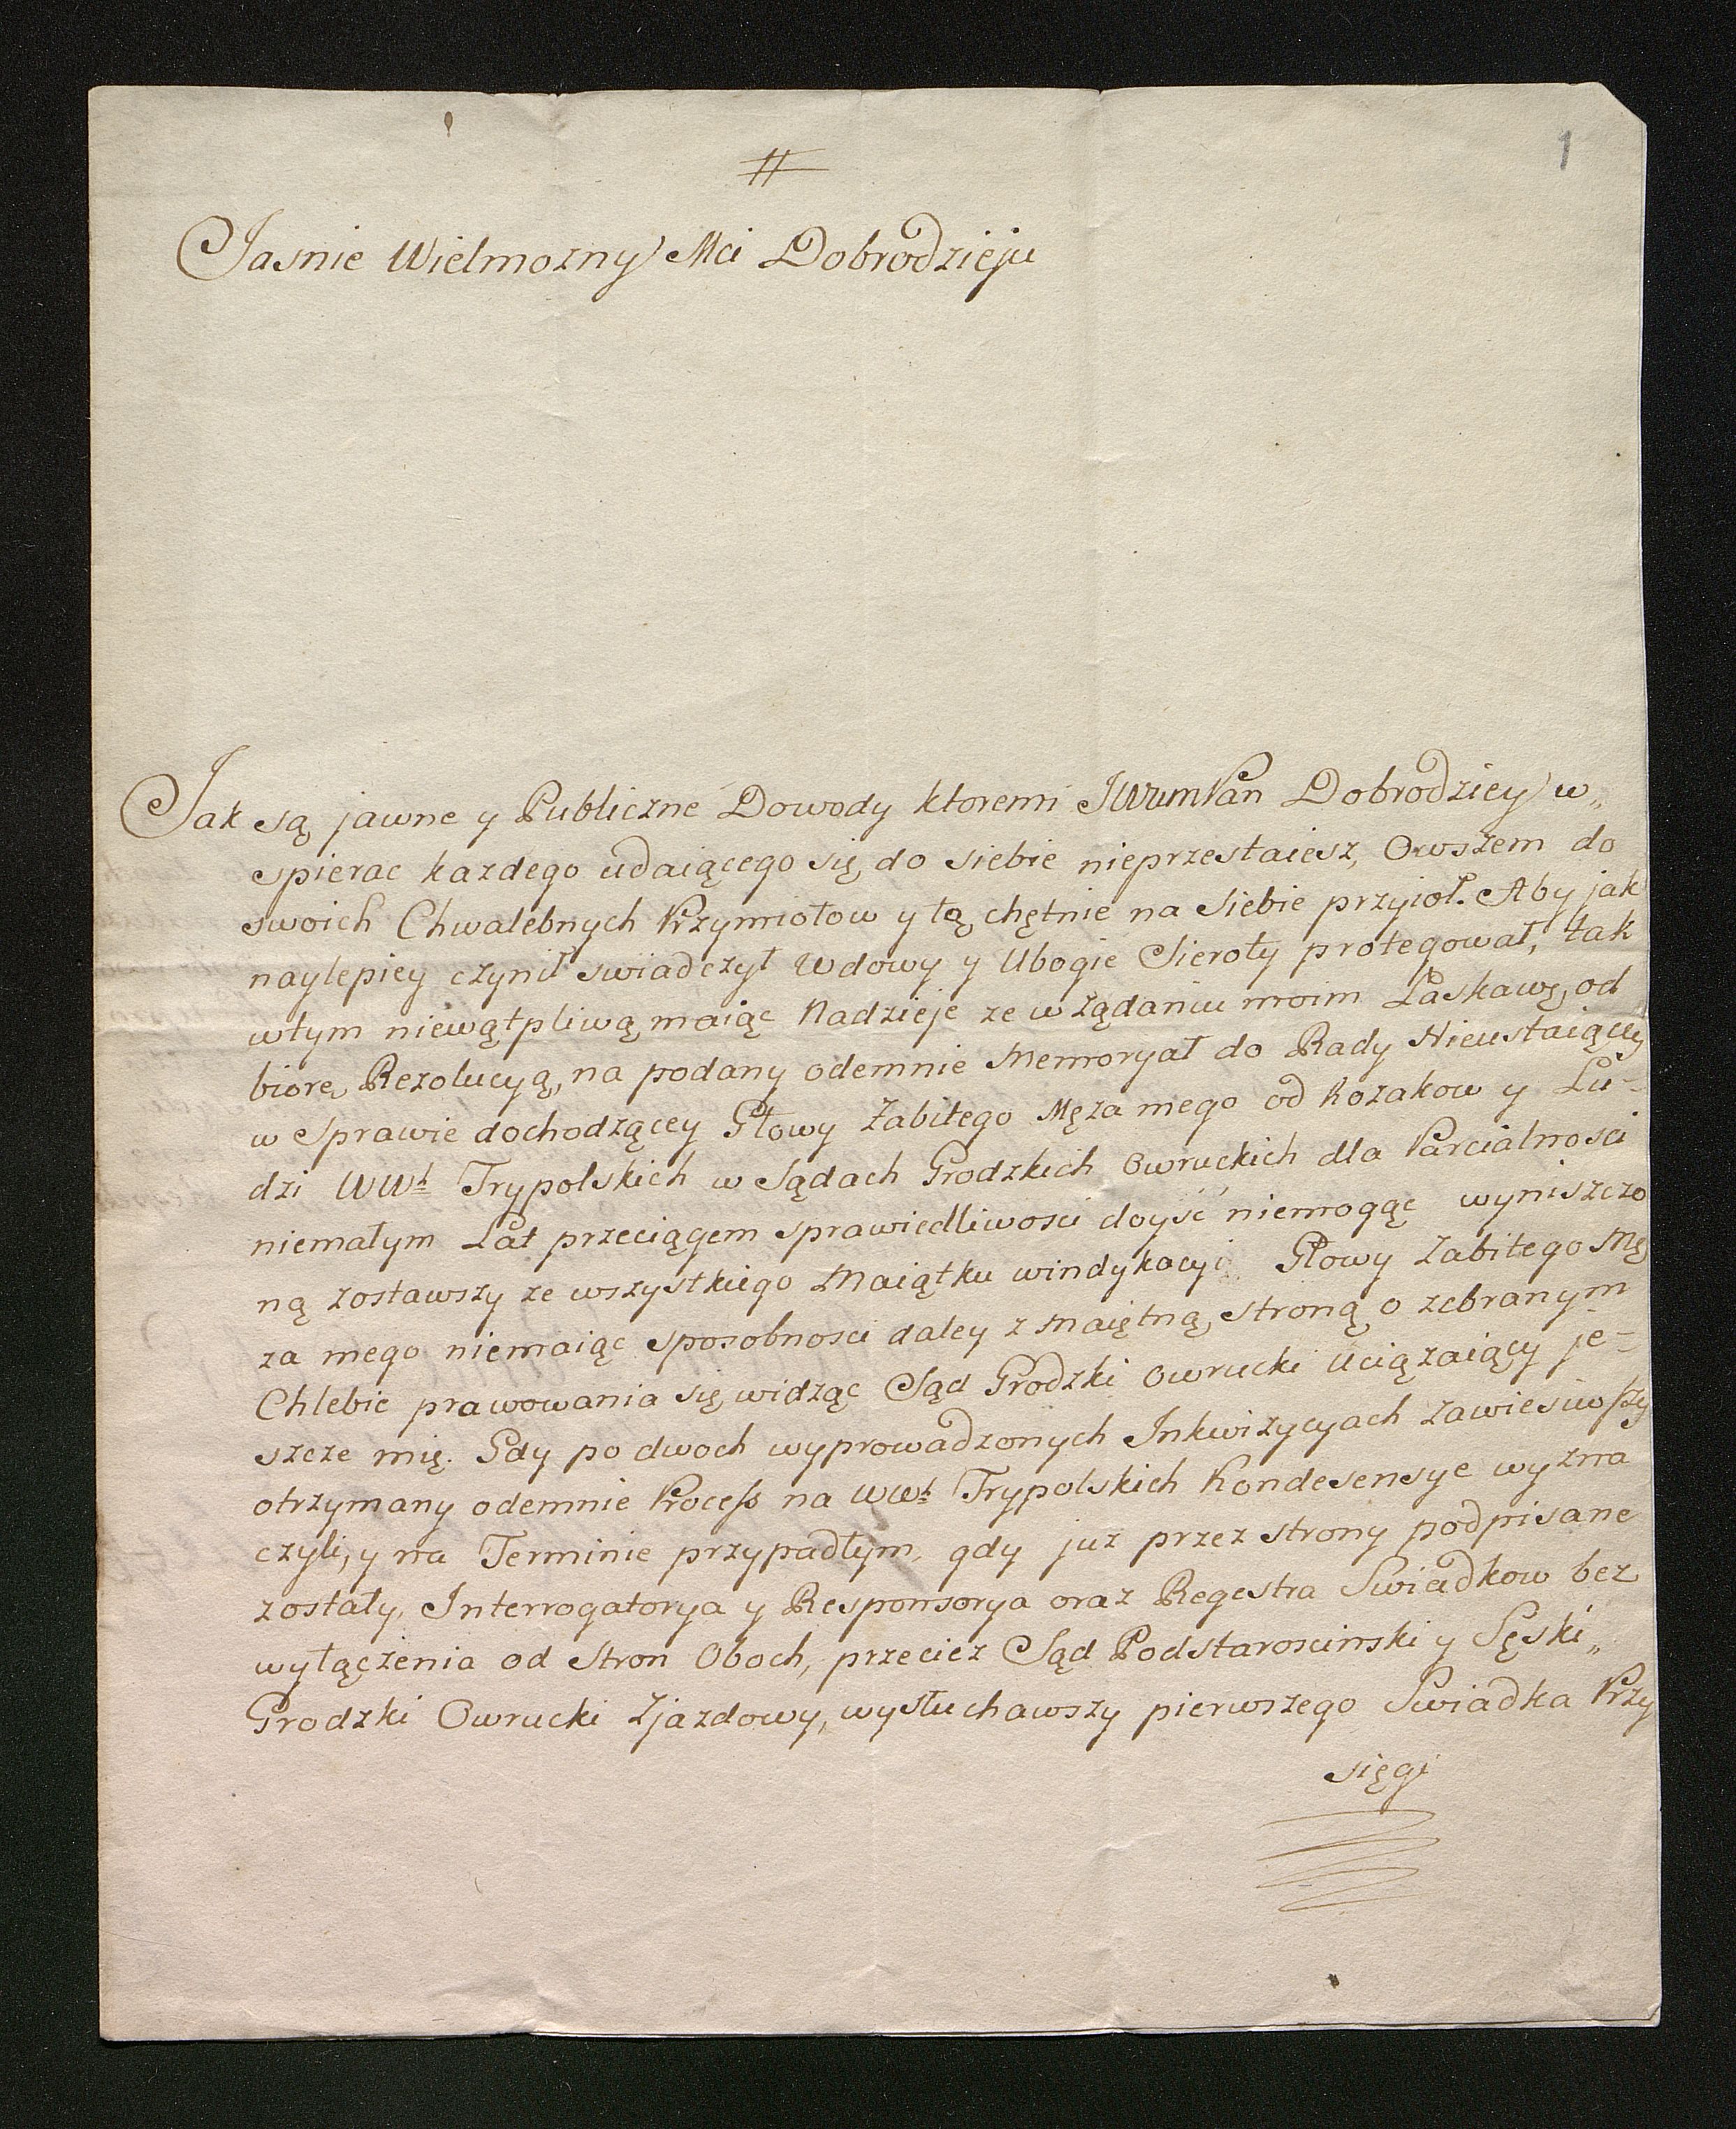 1
#
Jasnie Wielmozny Mci Dobrodzieju
Jak są jawne y Publiczne Dowody ktoremi JWWmPan Dobrodziey w„
spierac kazdego udaiącego się do siebie nieprzestaiesz, Owszem do
swoich Chwalebnych Przymiotow y tą chętnie na Siebie przyioł. Aby jak
naylepiey czynił swiadczył Wdowy y Ubogie Sieroty protegował, tak
wtym niewątpliwą maiąc Nadzieje ze w Żądaniu moim Łaskawą od
biorę Rezolucyą, na podany odemnie Memoryał do Rady Nieustaiącey
w Sprawie dochodzącey Głowy Zabitego Męza mego od Kozakow y Lu-
dzi WWch Trypolskich w Sądach Grodzkich Owruckich dla Parcialnosci
niemałym Lat przeciągem sprawiedliwosci doyść niemogąc wyniszczo
ną zostawszy ze wszystkiego Maiątku windykacyi Głowy Zabitego Mę
za mego niemaiąc sposobnosci daley z Maiętną stroną o zebranym
Chlebie prawowania się widząc Sąd Grodzki Owrucki uciązaiący je-
szcze mię. Gdy po dwoch wyprowadzonych Inkwizycyach Zawiesiwszy
otrzymany odemnie Process na WWch Trypolskich Kondesensye wyzna
czyli, y na Terminie przypadłym, gdy juz przez strony podpisane
zostały, Interrogatorya y Responsorya oraz Regestra Swiadkow bez
wyłączenia od Stron Oboch, przeciez Sąd Podstaroscinski y Sęski„
Grodzki Owrucki Zjazdowy, wysłuchawszy pierwszego Swiadka Przy
sięgi